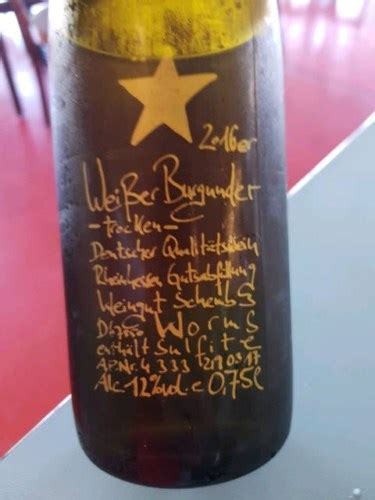 2016er
Weißer Burgunder
-trocken-
Deutscher Qualitätswein
Rheinhessen Gutsabfüllung
Weingut Schembs
Worms
enthält Sulfite
AP.Nr. 4 333 219 03 17
Alc. 12%vol. e 0,75l